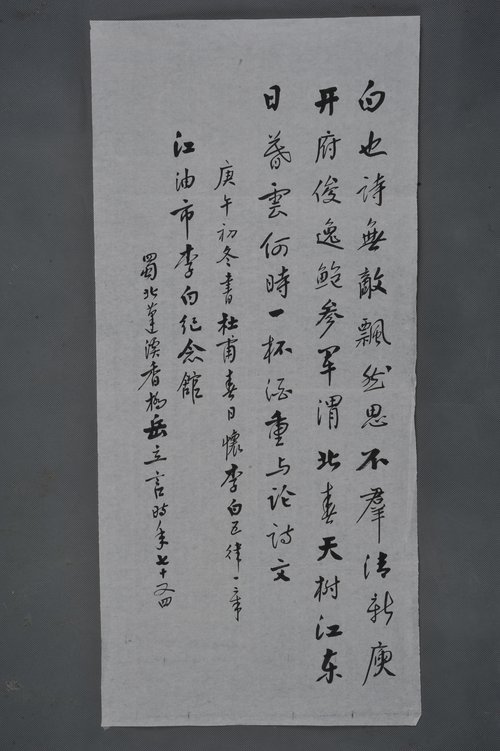 白也詩無敵飄然思不羣清新庾
开府俊逸鮑参军渭北春天树江东
日暮雲何時一杯酒重与论诗文
庚午初冬書杜甫春日懷李白五律一章
江油市李白纪念館
蜀北蓬溪香板岳立言时年七十又四